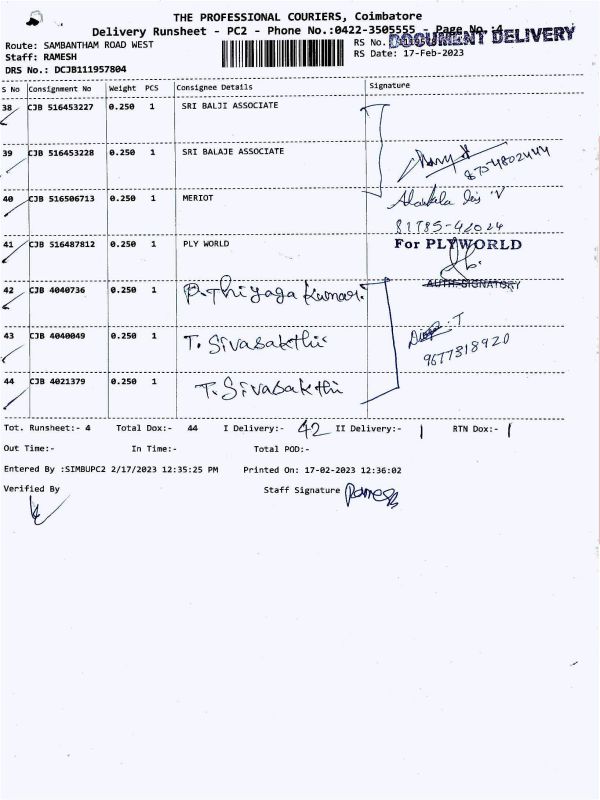 THE PROFESSIONAL COURIERS, Coimbatore
Delivery Runsheet - PC2 - Phone No.:0422-3505555 - Page No :4
DOCUMENT DELIVERY
Route: SAMBANTHAM ROAD WEST
RS No.
Staff: RAMESH
RS Date: 17-Feb-2023
DRS No.: DCJB111957804
S No Consignment No Weight PCS Consignee Details Signature
38 CJB 516453227 0.250 1 SRI BALJI ASSOCIATE
39 CJB 516453228 0.250 1 SRI BALAJE ASSOCIATE
8754802444
40 CJB 516506713 0.250 1 MERIOT
81785-42024
41 CJB 516487812 0.250 1 PLY WORLD For PLYWORLD
AUTH.SIGNATORY
42 CJB 4040736 0.250 1 P.Thiyaga Kumar.
43 CJB 4040049 0.250 1 T. Sivasakthi
9677318920
44 CJB 4021379 0.250 1 T. Sivasakthi
Tot. Runsheet:- 4 Total Dox:- 44 I Delivery:- 42 II Delivery:- 1 RTN Dox:- 1
Out Time:- In Time:- Total POD:-
Entered By :SIMBUPC2 2/17/2023 12:35:25 PM Printed On: 17-02-2023 12:36:02
Verified By Staff Signature Ramesh